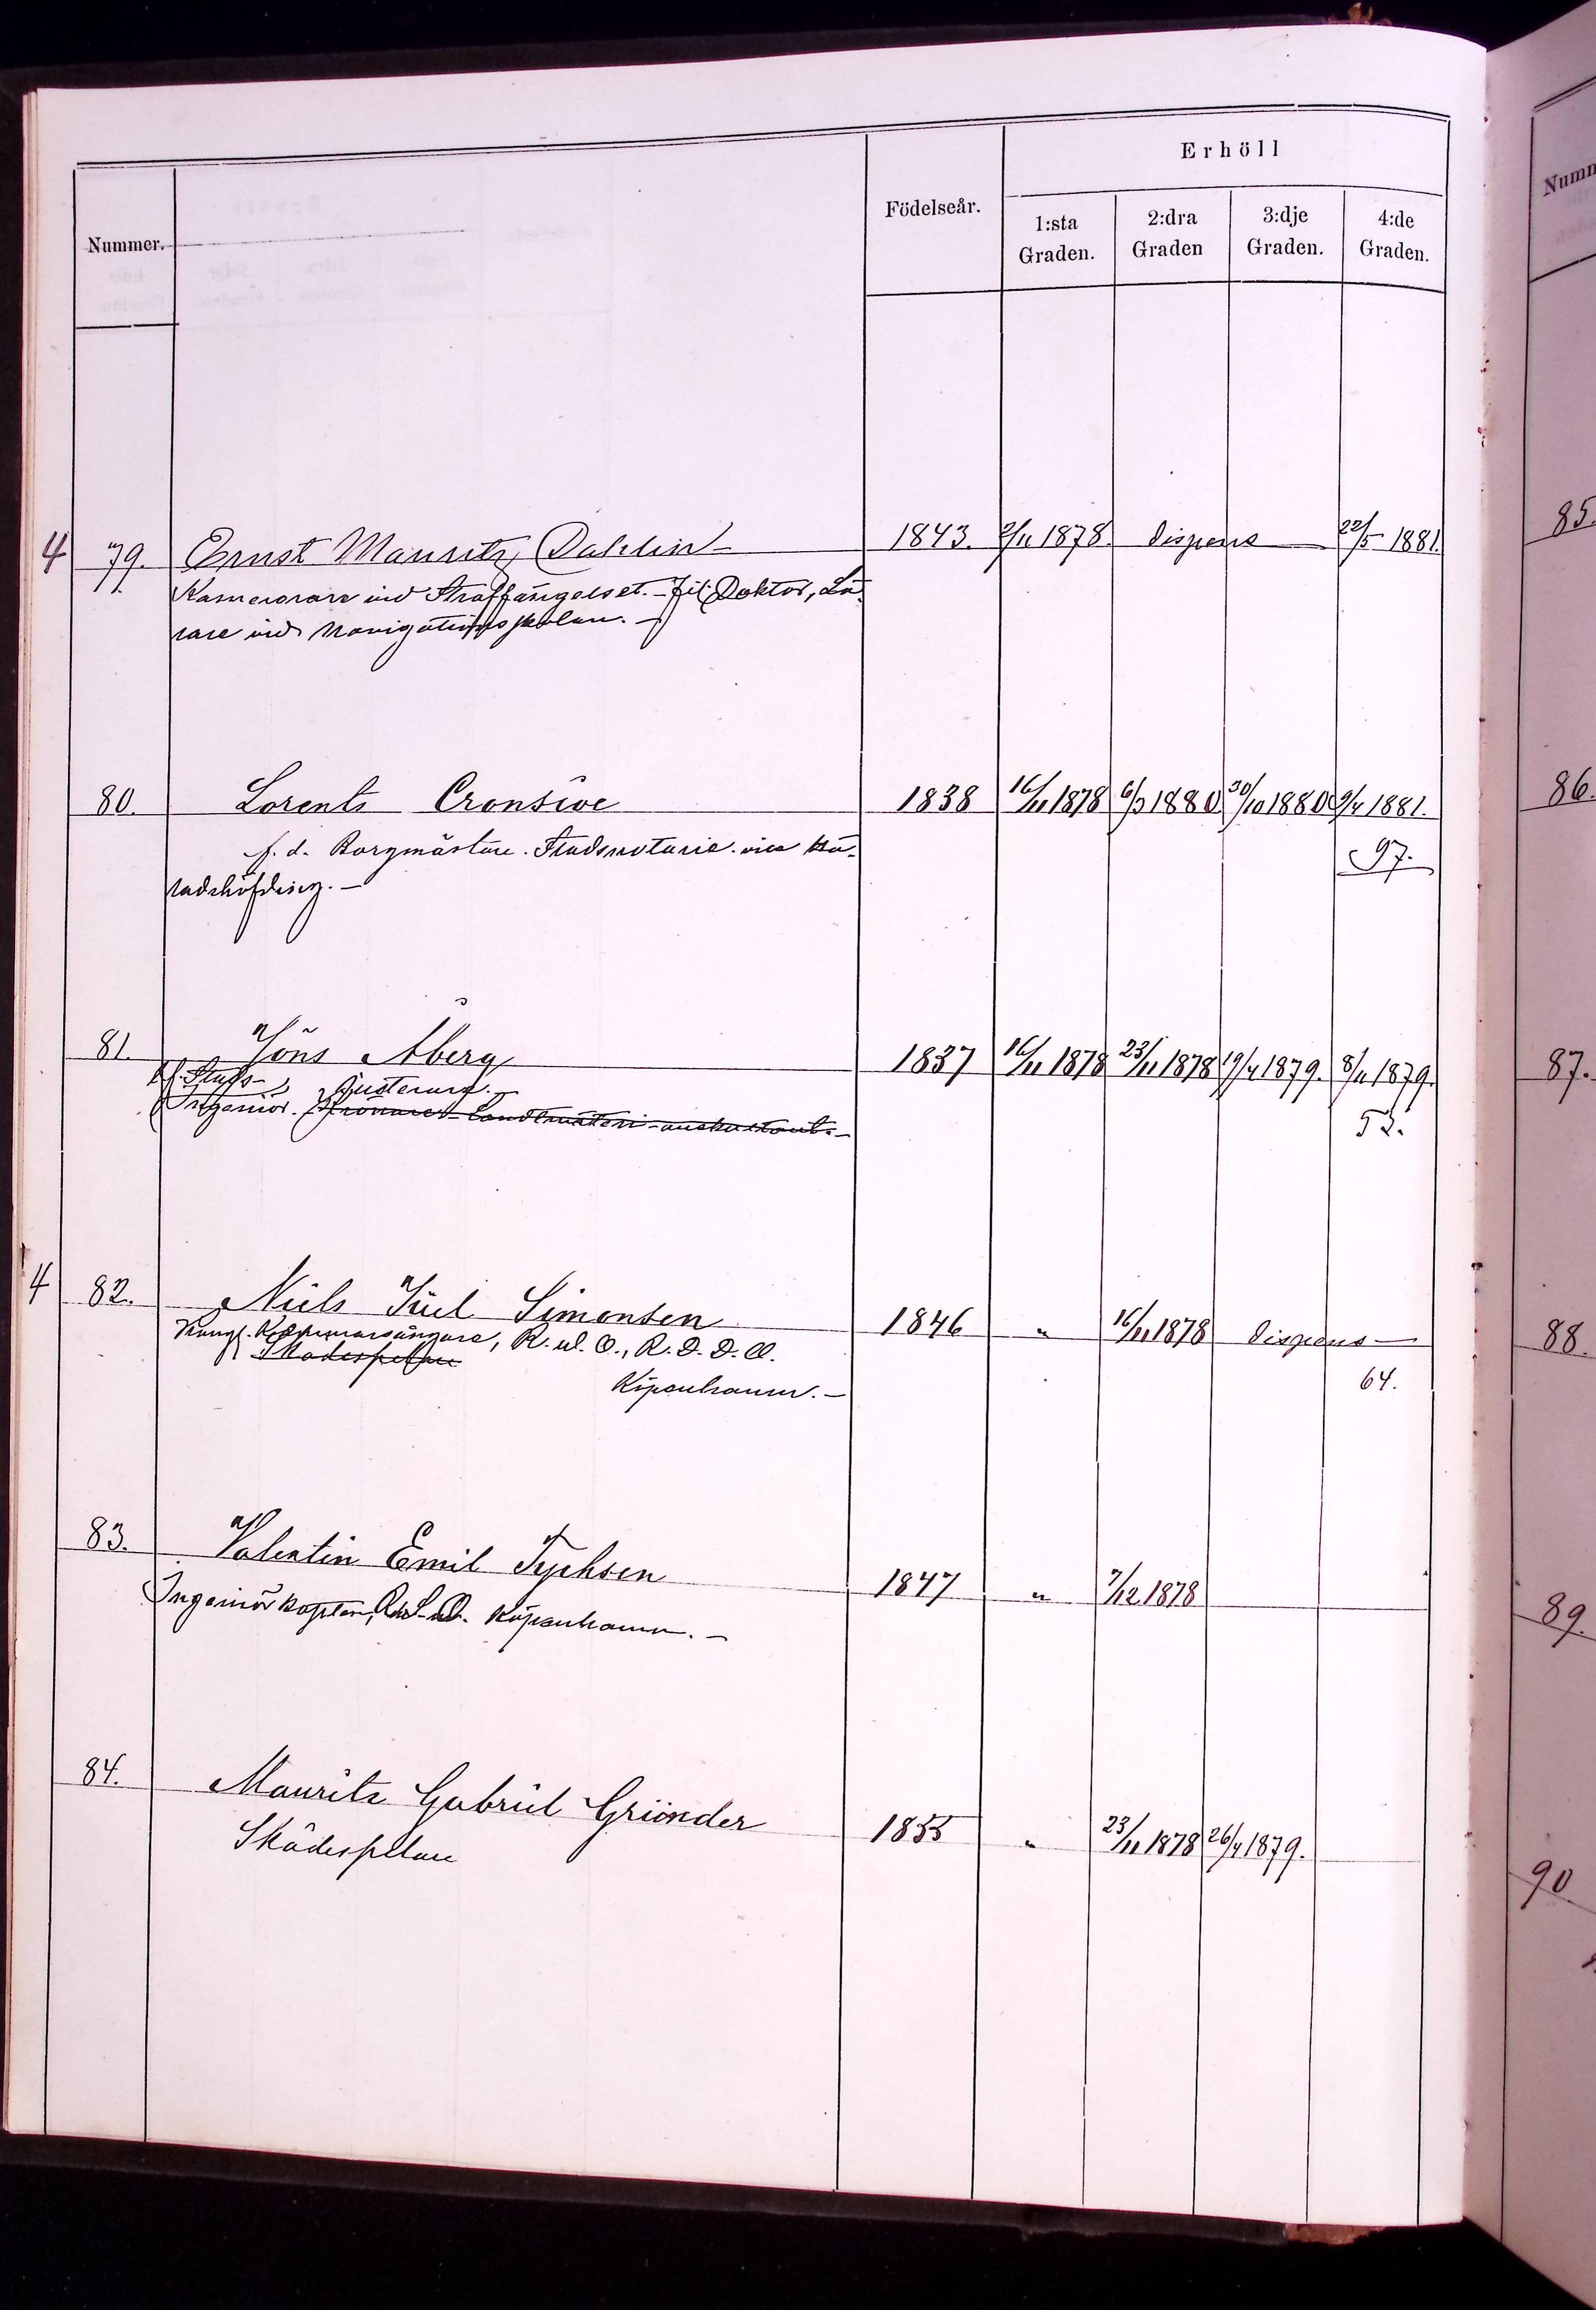 Erhöll
Nummer. Födelseår. 1:sta Graden. 2:dra Graden 3:dje Graden. 4:de Graden.
4 79. Ernst Mauritz Dahlin 1843. 2/11 1878. dispens 22/5 1881.
Kamererare vid Straffängelset. Fil. Doktor, Lä-
rare vid Navigationsskolan.
80. Lorents Cronsöe 1838 16/11 1878 6/3 1880 30/10 1880 9/4 1881.
f. d. Borgmästare. Stadsnotarie. vice hä- 97.
radshöfding.
81. Jöns Åberg 1837 16/11 1878 23/11 1878 19/4 1879. 8/11 1879.
Stads-
Ingeniör. Justerare. Landtmäteri-auskultant. 53.
4 82. Niels Juel Simonsen 1846 " 16/11 1878 dispens
Kungl. Kammarsångare, R. D. D. O. 64.
Skådespelare
Köpenhamn.
83. Valentin Emil Tychsen 1847 " 7/12 1878
Ingeniörkapten, Köpenhamn.
84. Mauritz Gabriel Gründer 1855 " 23/11 1878 26/4 1879.
Skådespelare
Numm
85.
86.
87.
88.
89.
90